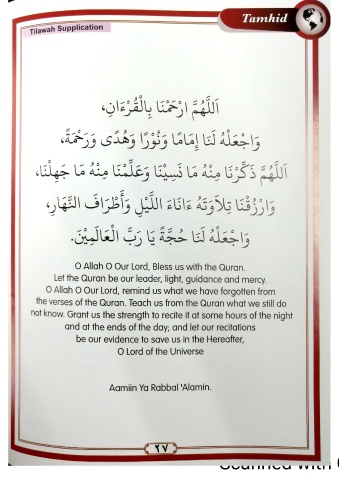 Tamhid
Tilawah Supplication
اَللَّهُمَّ ارْحَمْنَا بِالْقُرْءَانِ،
وَاجْعَلْهُ لَنَا إِمَامًا وَنُوْرًا وَهُدًى وَرَحْمَةً،
اَللَّهُمَّ ذَكِّرْنَا مِنْهُ مَا نَسِيْنَا وَعَلِّمْنَا مِنْهُ مَا جَهِلْنَا،
وَارْزُقْنَا تِلَاوَتَهُ ءَانَاءَ اللَّيْلِ وَأَطْرَافَ النَّهَارِ،
وَاجْعَلْهُ لَنَا حُجَّةً يَا رَبَّ الْعَالَمِيْنَ.
O Allah O Our Lord, Bless us with the Quran.
Let the Quran be our leader, light, guidance and mercy.
O Allah O Our Lord, remind us what we have forgotten from
the verses of the Quran. Teach us from the Quran what we still do
not know. Grant us the strength to recite it at some hours of the night
and at the ends of the day; and let our recitations
be our evidence to save us in the Hereafter,
O Lord of the Universe
Aamiin Ya Rabbal 'Alamin.
٢٧
Scanned with